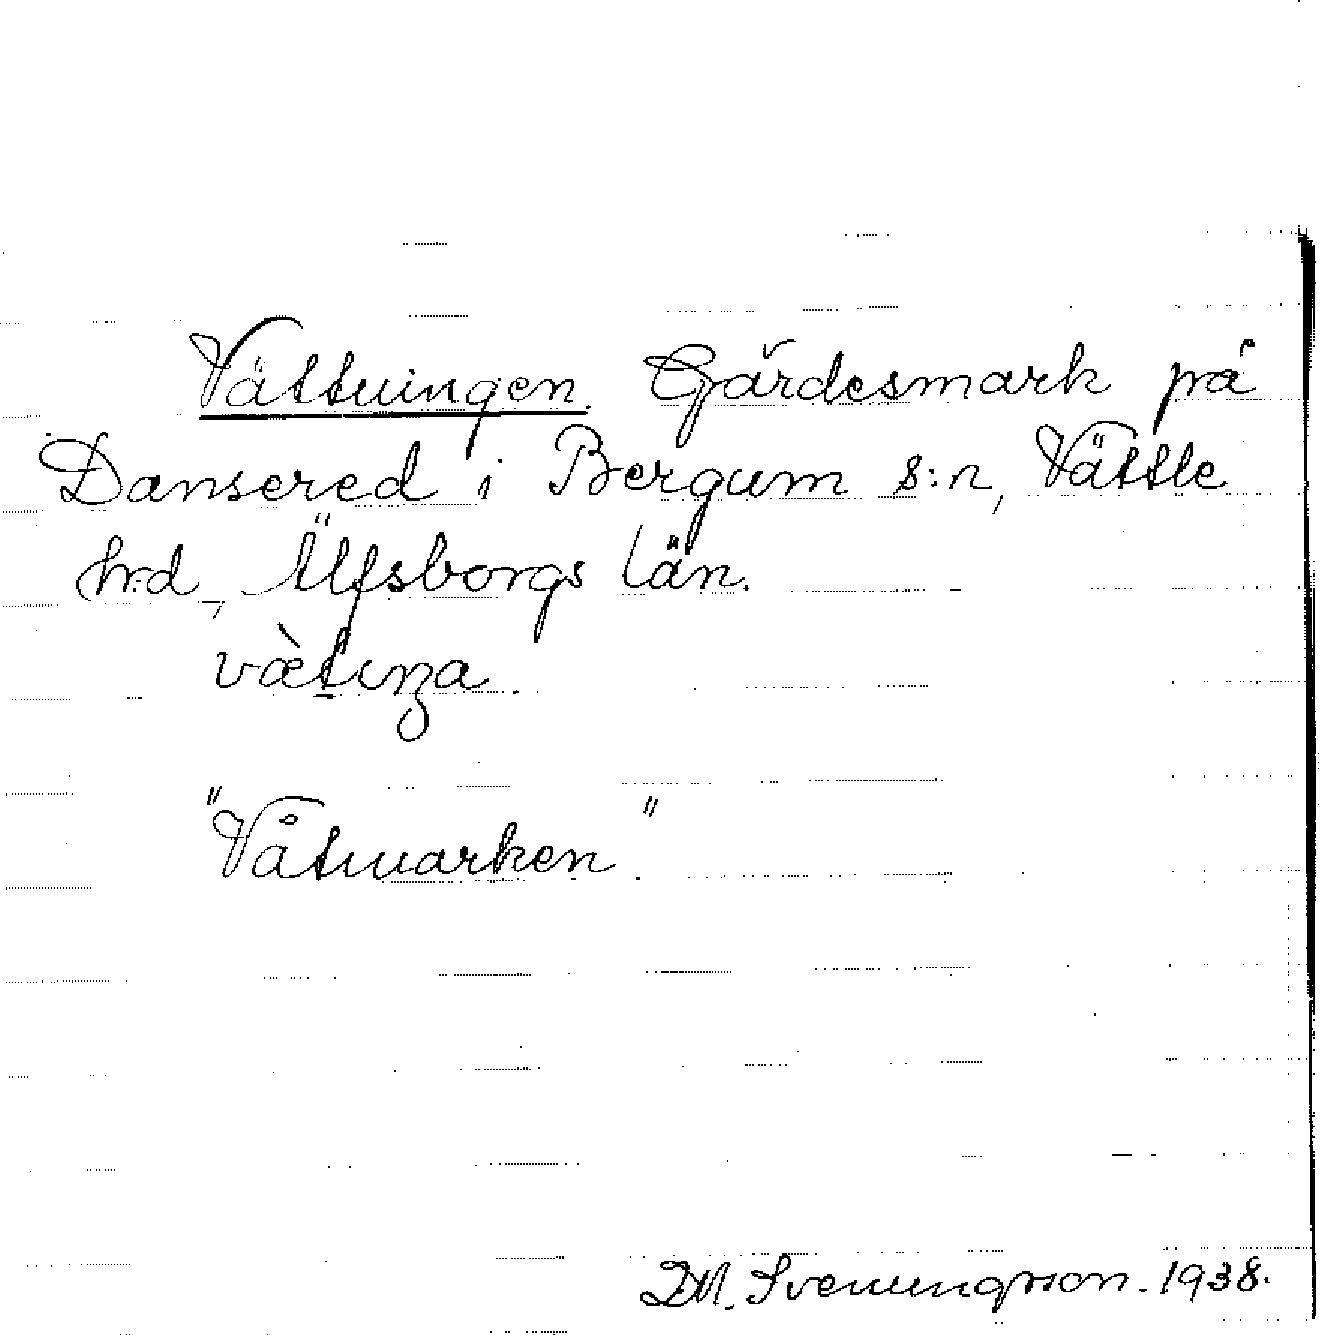 Vättningen. Gärdesmark på
Dansered i Bergum s:n, Vättle
hr:d, Älfsborgs län.
"Våtmarken".
D.M. Svenungsson. 1938.